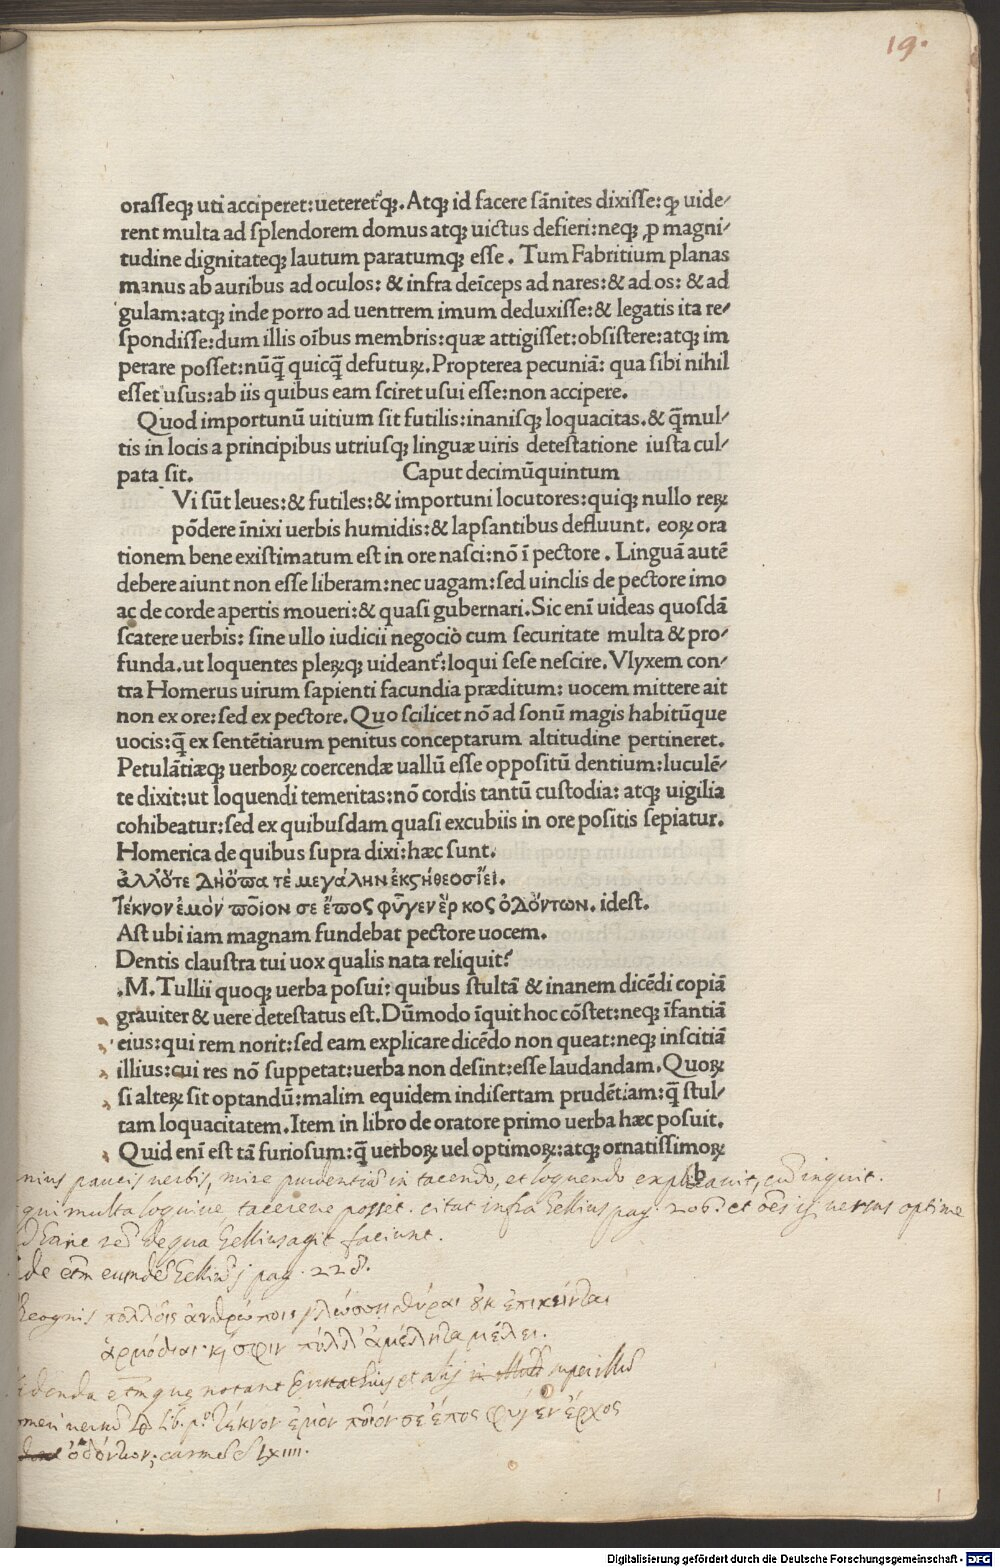 19.
orasseqꝫ uti acciperet:ueteretᷣqꝫ. Atqꝫ id facere sãnites dixisse:ꝙ uide/
rent multa ad splendorem domus atqꝫ uictus defieri:neqꝫ ꝓ magni/
tudine dignitateqꝫ lautum paratumqꝫ esse . Tum Fabritium planas
manus ab auribus ad oculos: & infra deĩceps ad nares:& ad os: & ad
gulam:atqꝫ inde porro ad uentrem imum deduxisse:& legatis ita re/
spondisse:dum illis oĩbus membris:quæ attigisset:obsistere:atqꝫ im
perare posset:nũq̃ quicq̃ defutuꝝ.Propterea pecuniã: qua sibi nihil
esset usus:ab iis quibus eam sciret usui esse:non accipere.
Quod importunũ uitium sit futilis:inanisqꝫ loquacitas.& q̃mul/
tis in locis a principibus utriusqꝫ linguæ uiris detestatione iusta cul/
pata sit. Caput decimũquintum
Vi sũt leues:& futiles:& importuni locutores:quiqꝫ nullo reꝝ
põdere ĩnixi uerbis humidis:& lapsantibus defluunt. eoꝝ ora
tionem bene existimatum est in ore nasci:nõ ĩ pectore . Linguã autẽ
debere aiunt non esse liberam:nec uagam:sed uinclis de pectore imo
ac de corde apertis moueri:& quasi gubernari.Sic enĩ uideas quosdã
scatere uerbis: sine ullo iudicii negociò cum securitate multa & pro/
funda.ut loquentes pleꝝqꝫ uideantᷣ:loqui sese nescire.Vlyxem con/
tra Homerus uirum sapienti facundia præditum: uocem mittere ait
non ex ore:sed ex pectore.Quo scilicet nõ ad sonũ magis habitũque
uocis:q̃ ex sentẽtiarum penitus conceptarum altitudine pertineret.
Petulãtiæqꝫ uerboꝝ coercendæ uallũ esse oppositũ dentium:luculẽ/
te dixit:ut loquendi temeritas:nõ cordis tantũ custodia: atqꝫ uigilia
cohibeatur:sed ex quibusdam quasi excubiis in ore positis sepiatur.
Homerica de quibus supra dixi:hæc sunt.
ἀλλὅτε Δὴὅϖα τέ μεγάλην ἐκςήθεοσἵει.
Τέκνον ἐμὸν ϖοῖον σε ἔϖος φῦγεν ἕρ κος ὀΔὄντων. idest.
Ast ubi iam magnam fundebat pectore uocem.
Dentis claustra tui uox qualis nata reliquit?
.M.Tullii quoqꝫ uerba posui: quibus stultã & inanem dicẽdi copiã
grauiter & uere detestatus est.Dũmodo ĩquit hoc cõstet:neqꝫ ĩfantiã
eius:qui rem norit:sed eam explicare dicẽdo non queat:neqꝫ inscitiã
illius:cui res nõ suppetat:uerba non desint:esse laudandam.Quoꝝ
si alteꝝ sit optandũ:malim equidem indisertam prudẽtiam:q̃ stul/
tam loquacitatem.Item in libro de oratore primo uerba hæc posuit.
Quid enĩ est tã furiosum:q̃ uerboꝝ uel optimoꝝ:atqꝫ ornatissimoꝝ
b
nius paucis uerbis, mire prudentiã in tacendo, et loquendo explicauit, cũ inquit.
qui multa loquiue tacereue posset. citat infra Gellius pag. 206. et oẽs ii uersus optime
de qua Gellius agit faciunt.
de etm eumdẽ Gelliũ pag. 228.
Theognis πολλοῖς ἀνθρώποις γλώσσῃ θύραι ȣκ ἐπικεῖνται
ἁρμόδιαι· καί σφιν πόλλ' ἀμέλητα μέλει.
etm que notant et alij super illud
τέκνον ἐμὸν ποῖόν σε ἔπος φύγεν ἕρκος
ὀδόντων;